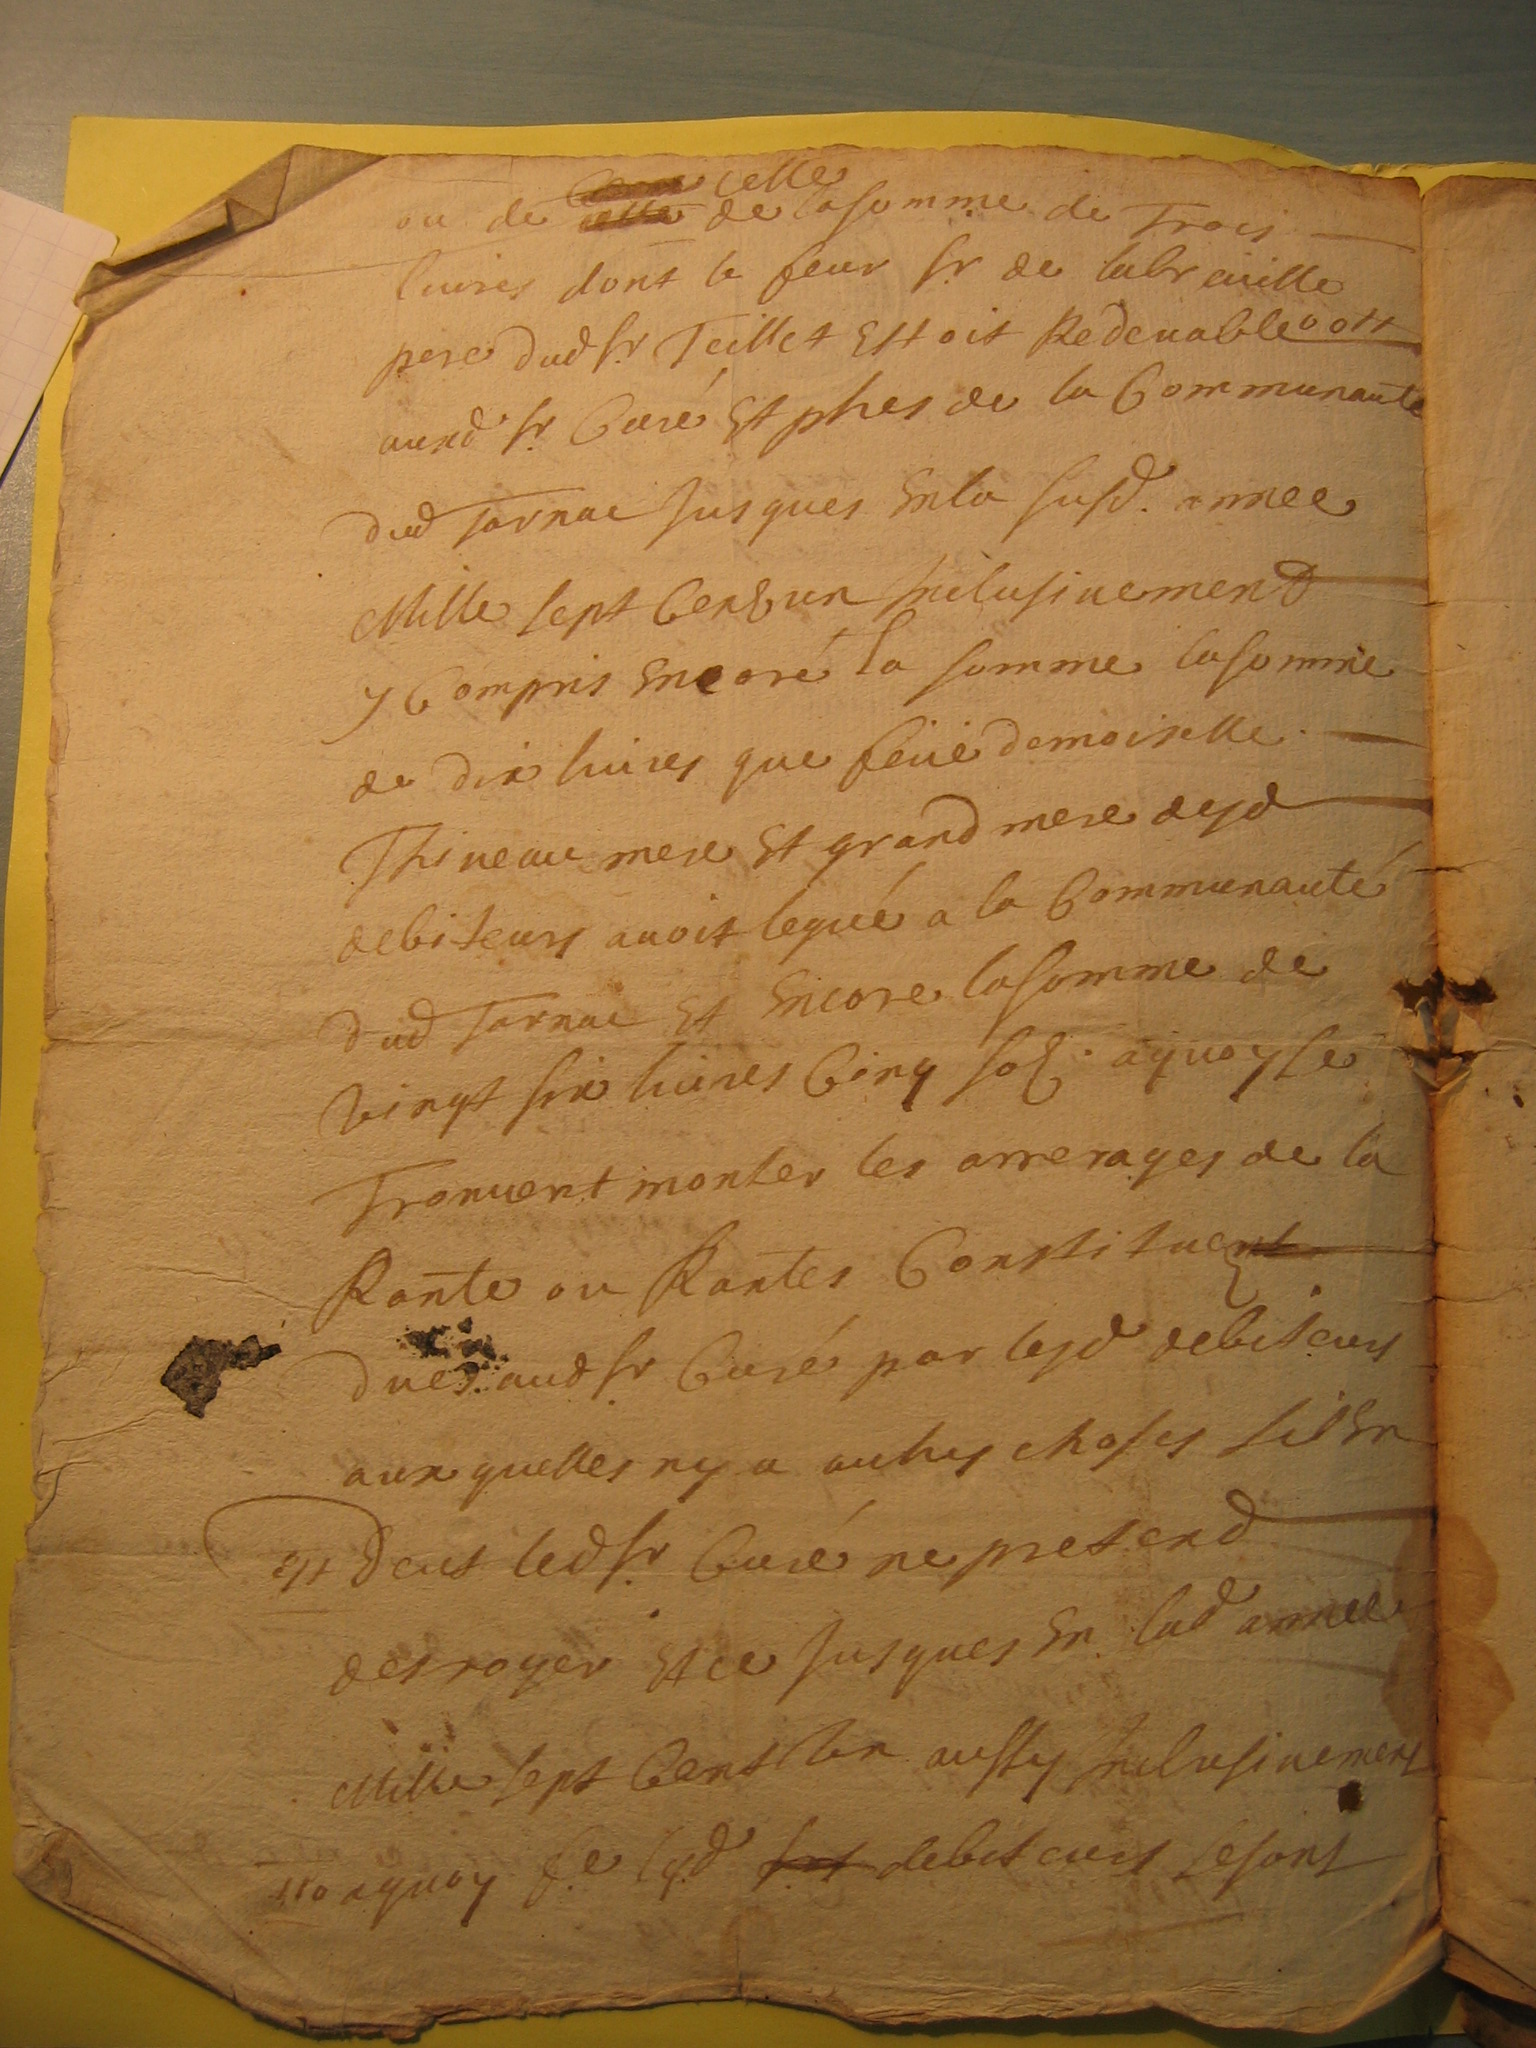 celle
ou de celle de la somme de Trois
liures dont le feur sr de labreuille
pere dud sr Teillet Estoit Redeuable
auxd sr Curé Et pbres de la Communauté
dud Tarnac Jusques En la susd. annee
Mille sept Cent un Inclusiuement
y Compris Encore la somme la somme
de dix liures que feüe demoiselle
Thineau mere Et grand mere desd
debiteurs auoit legué a la Communauté
dud Tarnac Et Encore la somme de
vingt six liures Cinq sols aquoy se
Trouuent monter les arrerages de la
Rante ou Rantes Constitue
dues aud sr Curé par lesd debiteurs
aux quelles ny a autres choses sil En
Est deus led sr Curé ne pretend
desroger Et ce Jusques En lad annee
Mille sept Cent un aussy Inclusiuement
aquoy lesd debiteurs se sont